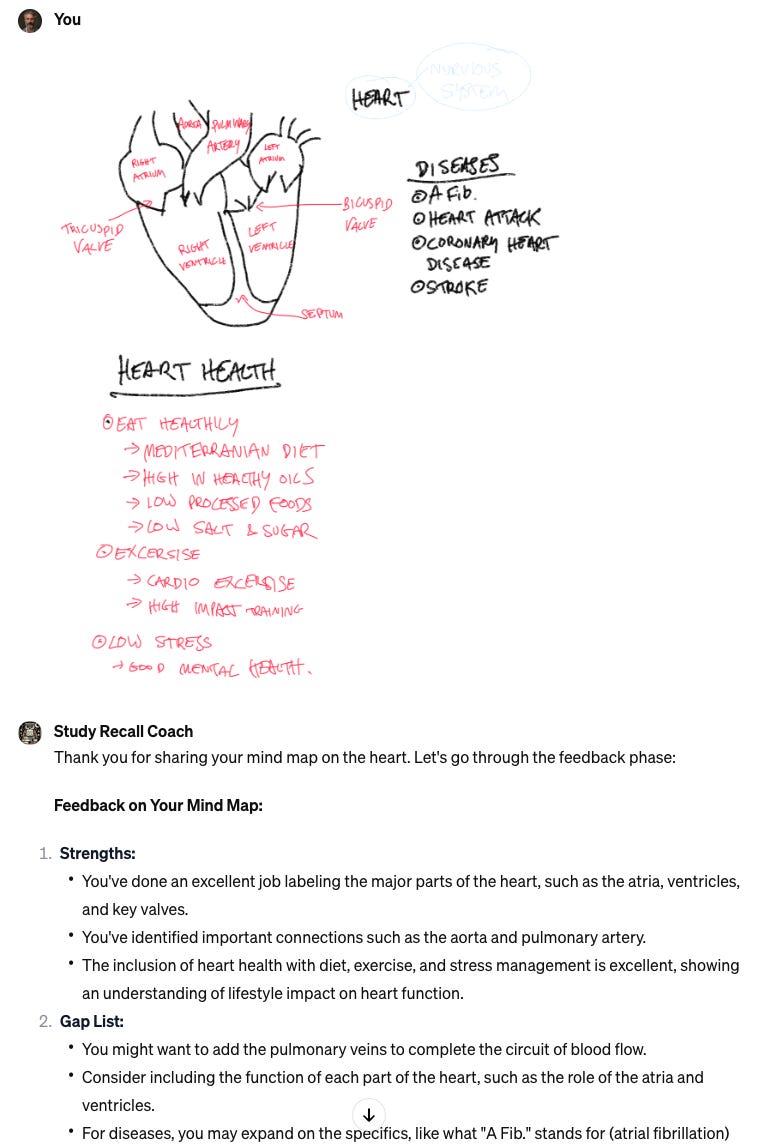 You
NURVIOUS
SYSTEM
HEART
AORTA
PULMINARY
ARTERY
LEFT
ATRIUM
RIGHT
ATRIUM
DISEASES
A FIB.
HEART ATTACK
CORONARY HEART
DISEASE
STROKE
TRICUSPID
VALVE
BICUSPID
VALVE
RIGHT
VENTRICLE
LEFT
VENTRICLE
SEPTUM
HEART HEALTH
EAT HEALTHILY
→ MEDITERRANIAN DIET
→ HIGH IN HEALTHY OILS
→ LOW PROCESSED FOODS
→ LOW SALT & SUGAR
EXCERSISE
→ CARDIO EXCERSISE
→ HIGH IMPACT TRAINING
LOW STRESS
→ GOOD MENTAL HEALTH.
Study Recall Coach
Thank you for sharing your mind map on the heart. Let's go through the feedback phase:
Feedback on Your Mind Map:
1. Strengths:
• You've done an excellent job labeling the major parts of the heart, such as the atria, ventricles,
and key valves.
• You've identified important connections such as the aorta and pulmonary artery.
• The inclusion of heart health with diet, exercise, and stress management is excellent, showing
an understanding of lifestyle impact on heart function.
2. Gap List:
• You might want to add the pulmonary veins to complete the circuit of blood flow.
• Consider including the function of each part of the heart, such as the role of the atria and
ventricles.
• For diseases, you may expand on the specifics, like what "A Fib." stands for (atrial fibrillation)